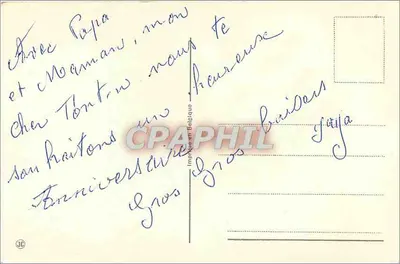 Avec Papa
et Maman, mon
cher Tonton nous te
souhaitons un heureux
Anniversaire
Gros Gros baisers
CPAPHIL
Imprimé en Belgique
JC